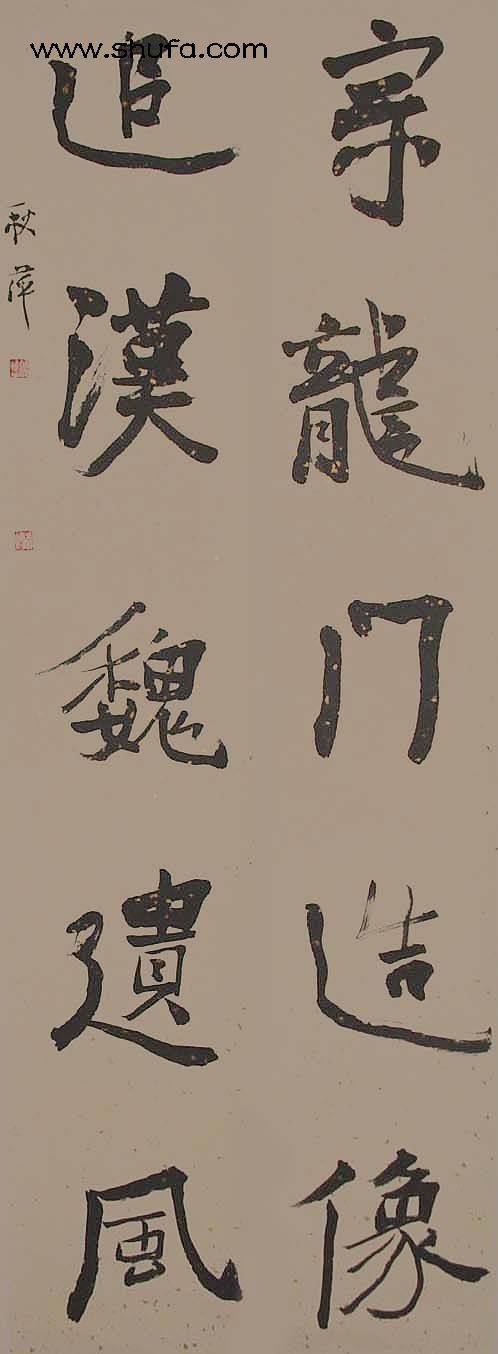 www.shufa.com
宗龍门造像
追漢魏遺風
秋萍